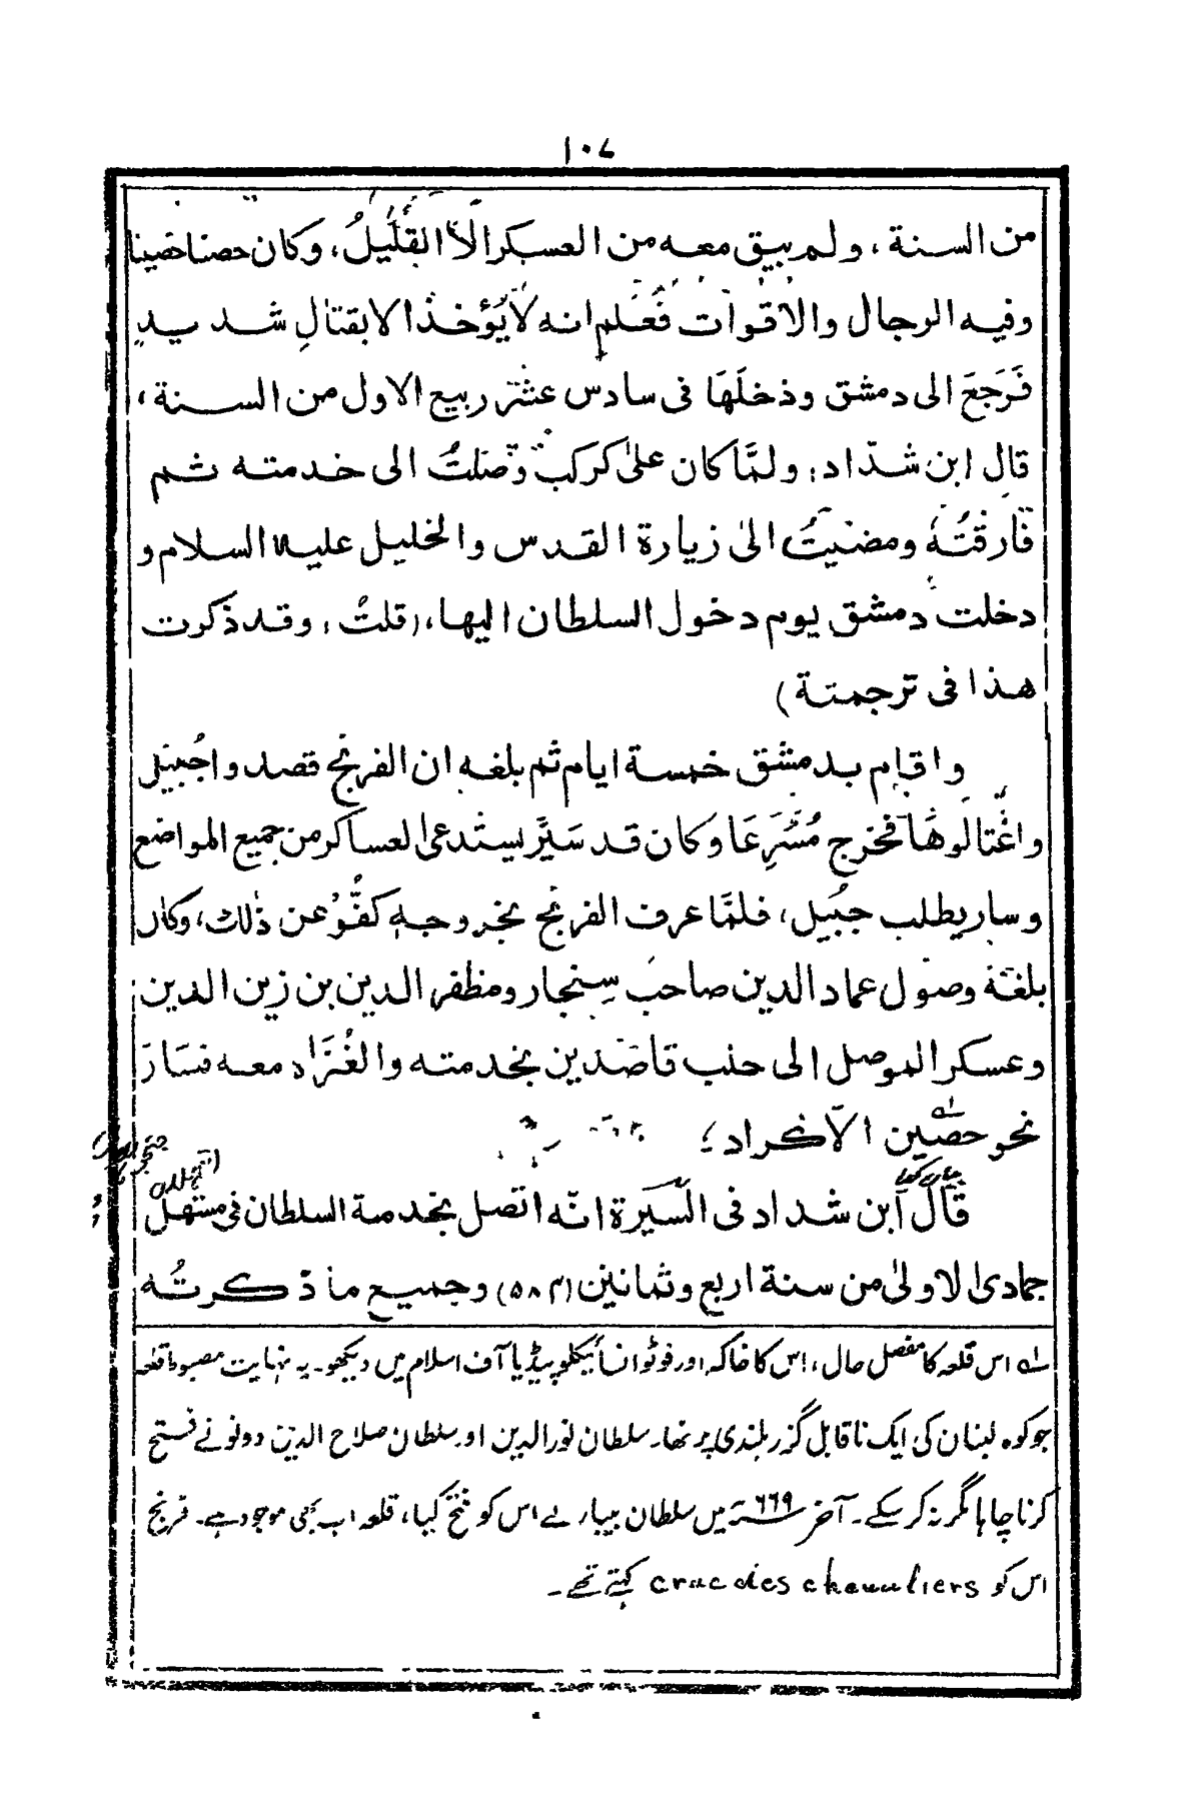 ١٠٧
من السنة، ولم يبق معه من العسكر الّا القَلیلُ، وكان حصنا حصينا
وفيه الرجال والاقوات فَعَلم انه لا يُؤخذ الا بقتالِ شديدٍ
فَرَجَعَ الى دمشق ودخلَهَا فى سادس عشر ربيع الاول من السنة،
قال ابن شدّاد: ولمَّا كان علىٰ كركب وَصَلتُ الى خدمته ثم
فارقتُهٗ ومضيتُ الىٰ زيارة القدس والخليل عليه السلام و
دخلت دمشق يوم دخول السلطان اليها، (قلتُ: وقد ذكرت
هذا فى ترجمتة)
واقام بدمشق خمسة ايام ثم بلغه ان الفرنج قصدوا جُبيل
واغتالوهَا فخرج مُسْرِعَا وكان قد سَيَّر يستدعى العساكر من جميع المواضع
وسار يطلب جبُيل، فلمَّا عرف الفرنج بخروجهٖ كفُّوْ عن ذٰلك، وكان
بلغهٗ وصول عماد الدين صاحب سِنجار ومظفر الدين بن زين الدين
وعسكر الموصل الى حلب قاصدين بخدمته والغُزَاه معه فسَارَ
نحو حصين الاكراد؛
قال ابن شداد فى السّيرة انّه اتّصل بخدمة السلطان فى مستهل
جمادى الاولىٰ من سنة اربع وثمانين (٥٨٤م) وجميع ما ذكرتُه
لہ اس قلعہ کا مفصل حال، اس کا خاکہ اور فوٹو انسائیکلوپیڈیا آف اسلام میں دیکھو۔ یہ نہایت مضبوط قلعہ
جو کوہ لبنان کی ایک ناقابل گزر بلندی پر تھا۔ سلطان نورالدین اور سلطان صلاح الدین دونو نے فتح
کرنا چاہا مگر نہ کر سکے۔ آخر ٦٦٩ ؁ میں سلطان بیبار نے اس کو فتح کیا، قلعہ اب بھی موجود ہے۔ فرنج
اس کو crac des chevaliers کہتے تھے۔